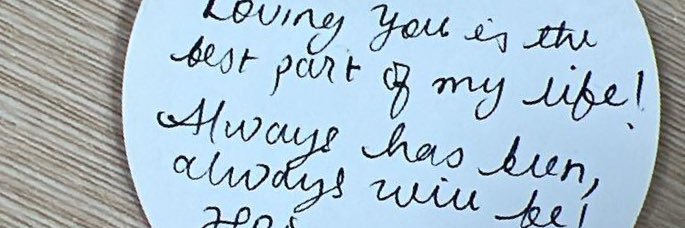 Loving you is the
best part of my life!
Always has been,
always will be!